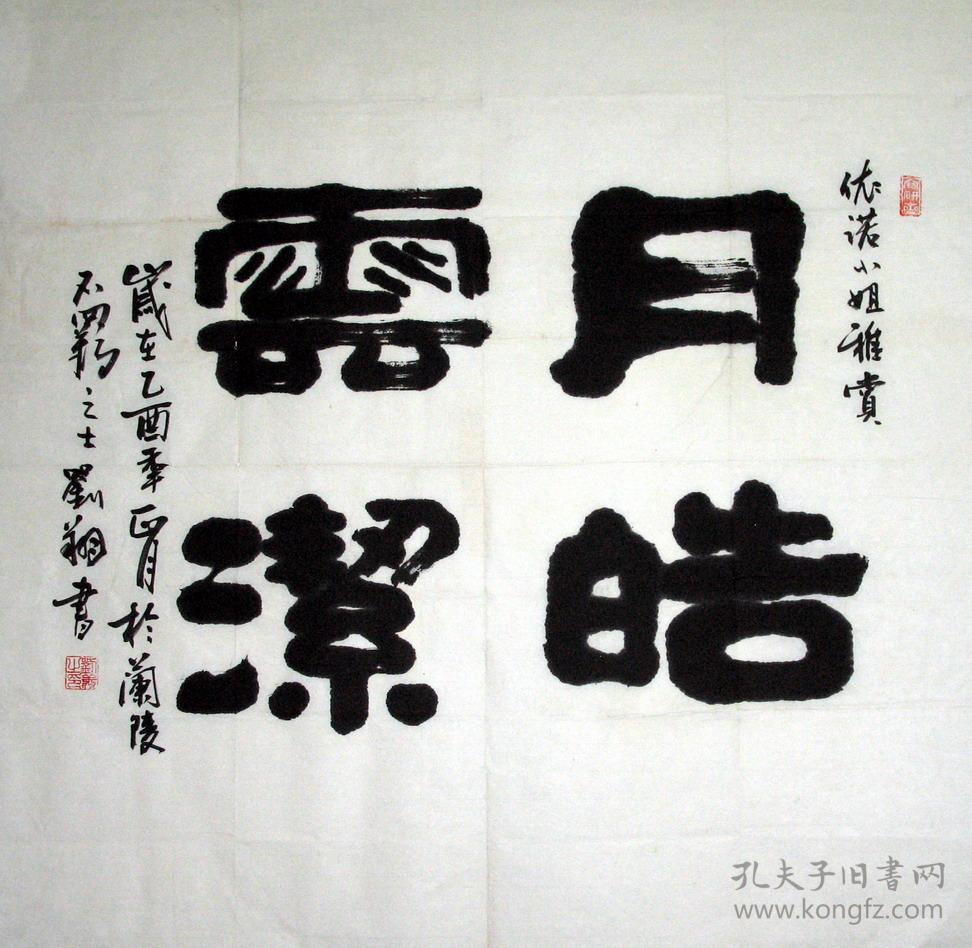 依诺小姐雅賞
月皓
雲潔
歲在乙酉年正月於蘭陵
不羈之士劉翔書
孔夫子旧書网
www.kongfz.com